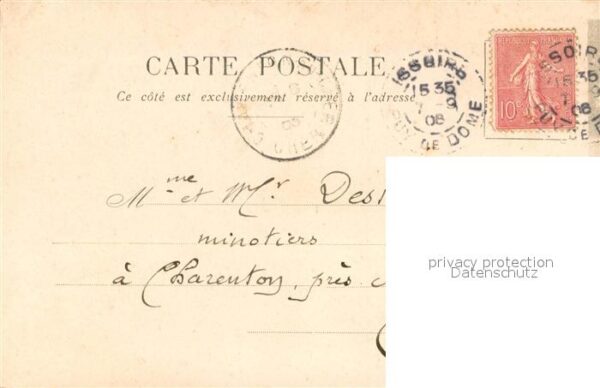 CARTE POSTALE
Ce côté est exclusivement réservé à l'adresse
ISSOIRE
15 35
08
PUY DE DOME
REPUBLIQUE FRANÇAISE
10c
ISSOIRE
15 35
08
DE
Mme et Mr. Des
minotiers
à Charenton, près
privacy protection
Datenschutz